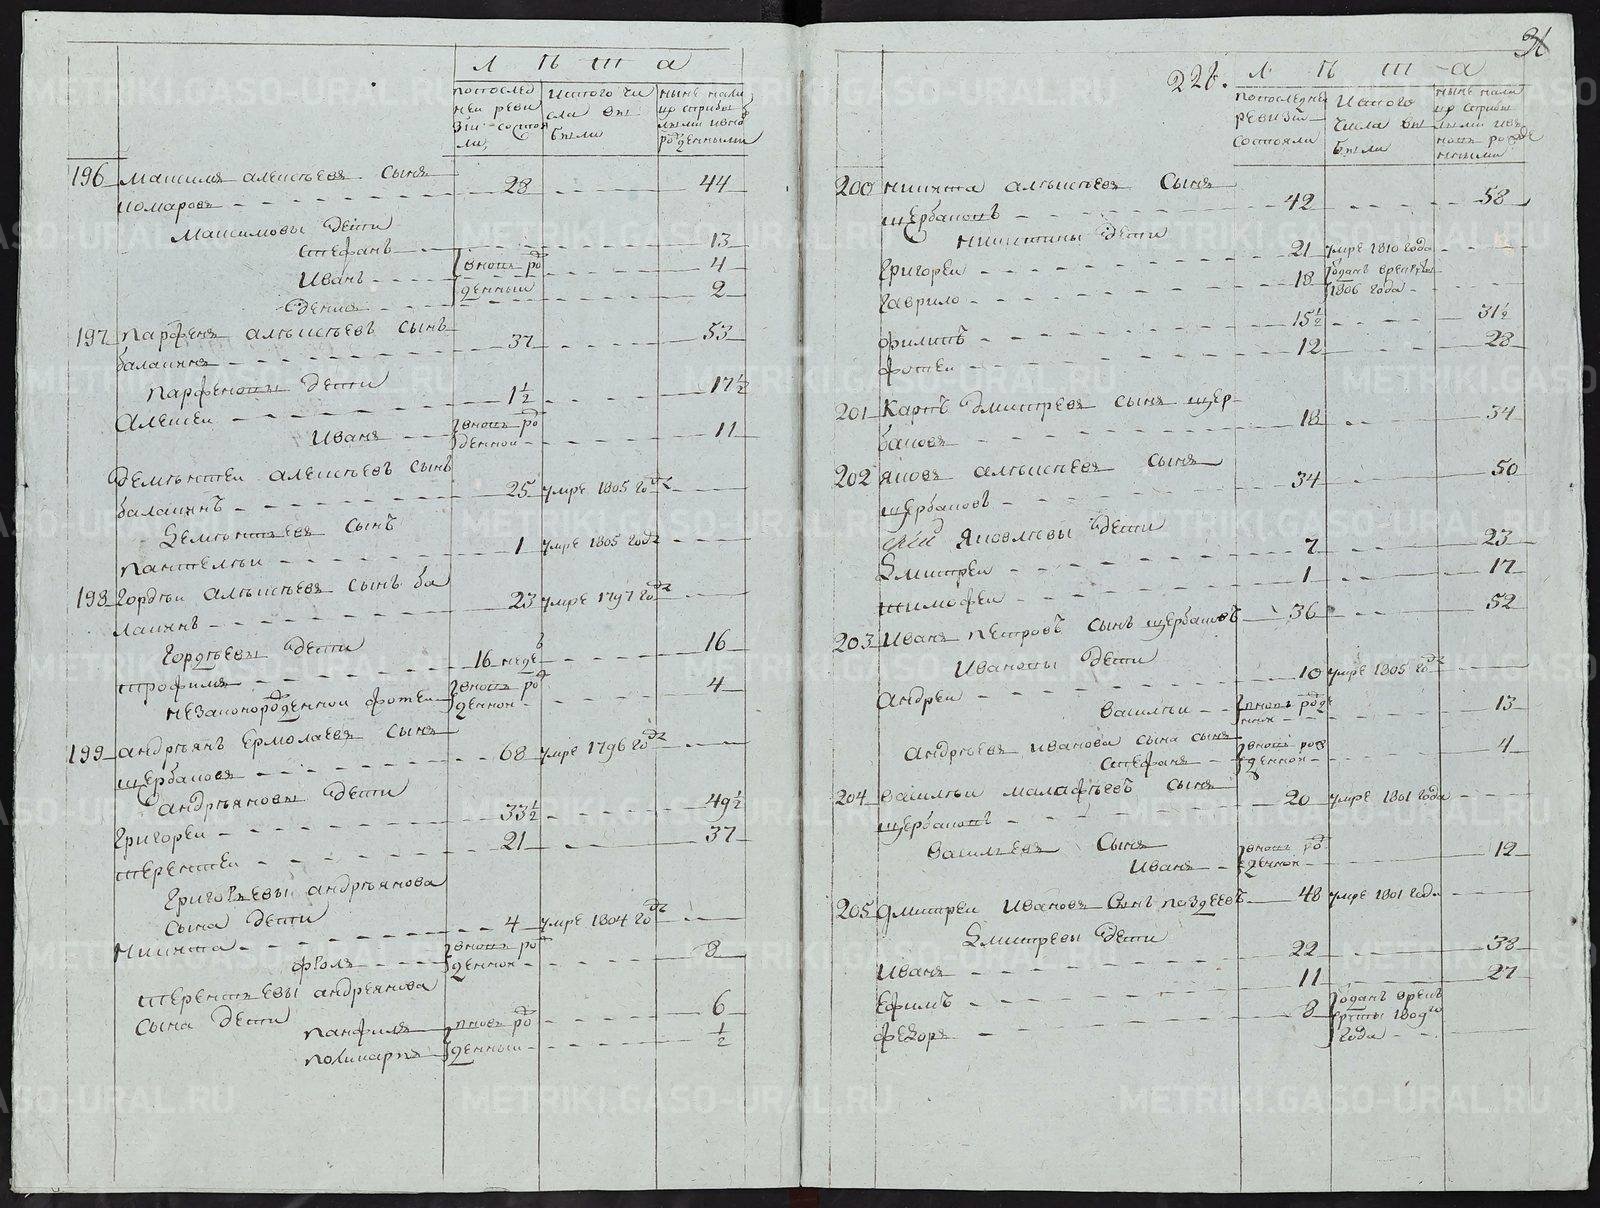 л ѣ т а
попослед
ней реви
зіи состоя
ли
Изтого чи
сла вы
были
ныне нали
цо сприбы
лыми ивно
рожденными
196 Максимъ алексѣевъ сынъ
комаровъ 28 44
Максимовы дети
стефанъ 13
Иванъ вновь ро 4
денис жденныи 2
197 парфенъ алѣксѣевъ сынъ
балакинъ 37 53
парфеновы дети
Алексеи 1½ 17½
Иванъ вновь ро
жденнои 11
дементеи алексѣевъ сынъ
балакинъ 25 умре 1805 года
дементьевъ сынъ
пантелѣи 1 умре 1805 года
198 гордѣи алѣксѣевъ сынъ ба
лакинъ 23 умре 1797 года
гордѣевы дети
трофимъ 16 недѣ 16
незаконорожденнои фотеи вновь ро
жденнои 4
199 андрѣянъ ермолаевъ сынъ
щербаковъ 68 умре 1796 года
андрѣяновы дети
григореи 33½ 49½
терентеи 21 37
григорьевы андрѣянова
сына дети
Никита 4 умре 1804 года
фролъ вновь ро
жденнои 8
терентьевы андреянова
сына дети
панфилъ вновь ро 6
поликарпъ жденныи ½
31
228.
л ѣ т а
попоследне
ревизіи
состояли
Изтого
числа вы
были
ныне нали
цо сприбы
лыми ивъ
новь рожде
нными
200 никита алѣксѣевъ сынъ
щербаковъ 42 58
никитины дети
григореи 21 умре 1810 года
гаврило 18 отданъ врекруты
1806 года
филипъ 15½ 31½
фотеи 12 28
201 Карпъ дмитревъ сынъ щер
баковъ 18 34
202 яковъ алѣксѣевъ сынъ
щербаковъ 34 50
яковлевы дети
дмитреи 7 23
тимофеи 1 17
203 Иванъ петровъ сынъ щербаковъ 36 52
Ивановы дети
андреи 10 умре 1805 года
василеи вновь рожде
ннои 13
андрѣевъ иванова сына сынъ
стефанъ вновь рож
деннои 4
204 василеи малафѣевъ сынъ
щербаковъ 20 умре 1801 года
васильевъ сынъ
иванъ вновь ро
жденнои 12
205 дмитреи Ивановъ сынъ поздеевъ 48 умре 1801 года
дмитревы дети
Иванъ 22 38
Ефимъ 11 27
федоръ 8 отданъ врек
руты 1809го
года